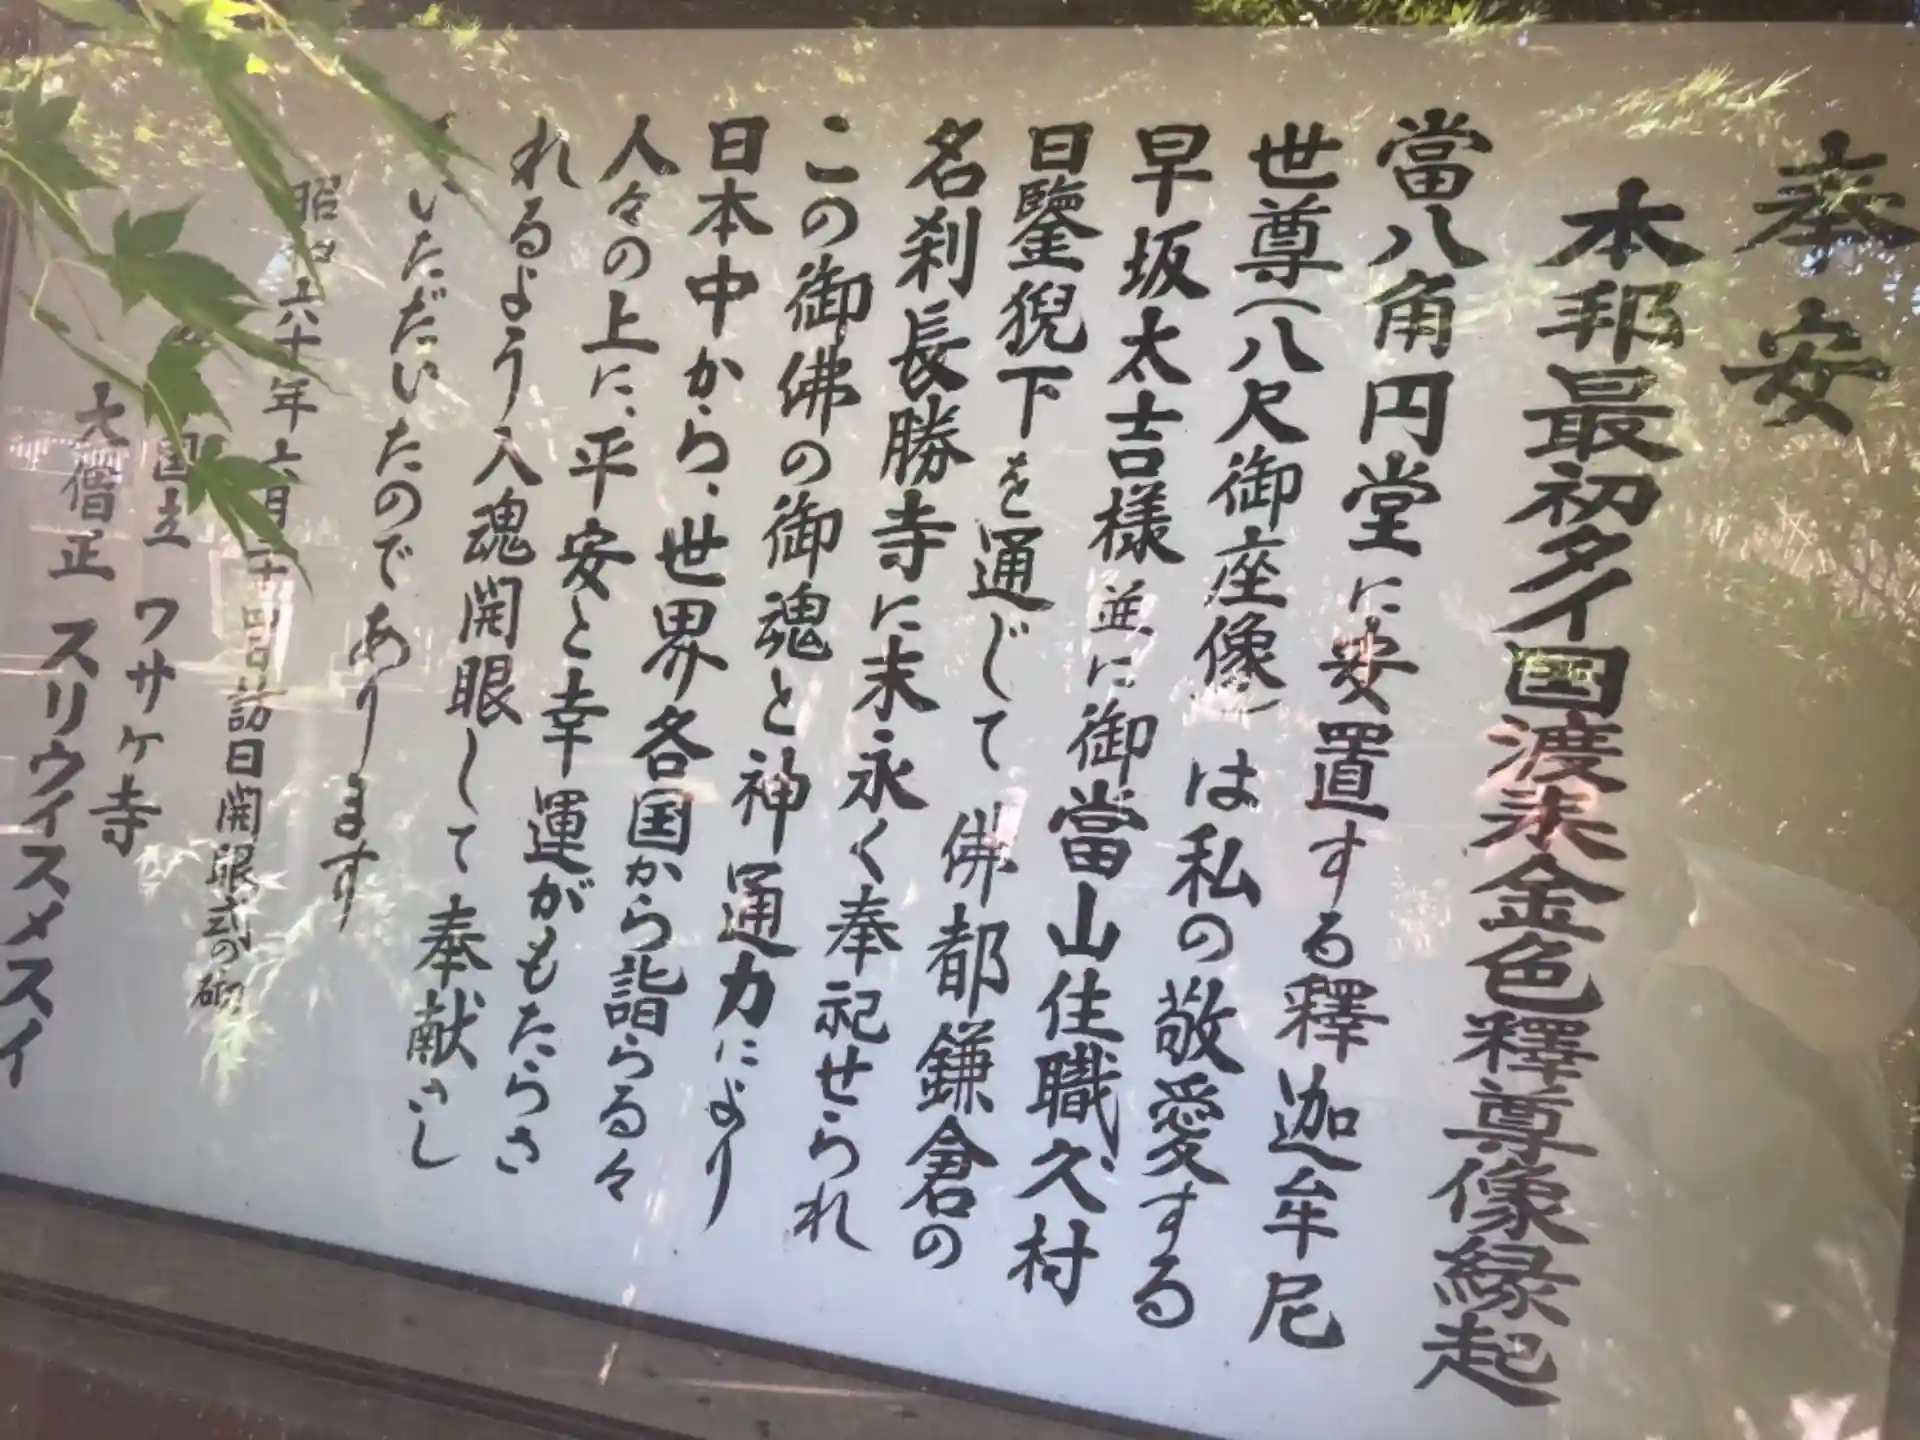 奉安
本邦最初タイ国渡来金色釋尊像縁起
當八角円堂に安置する釋迦牟尼
世尊(八尺御座像)は私の敬愛する
早坂太吉様並に御當山住職久村
日鑒猊下を通じて佛都鎌倉の
名刹長勝寺に末永く奉祀せられ
この御佛の御魂と神通力により
日本中から、世界各国から詣らる々
人々の上に、平安と幸運がもたらさ
れるよう入魂開眼して奉献さし
いただいたのであります
昭 六十年六月二十四日訪日開眼式の砌
国立 ワサケ寺
大僧正 スリウイスメスイ